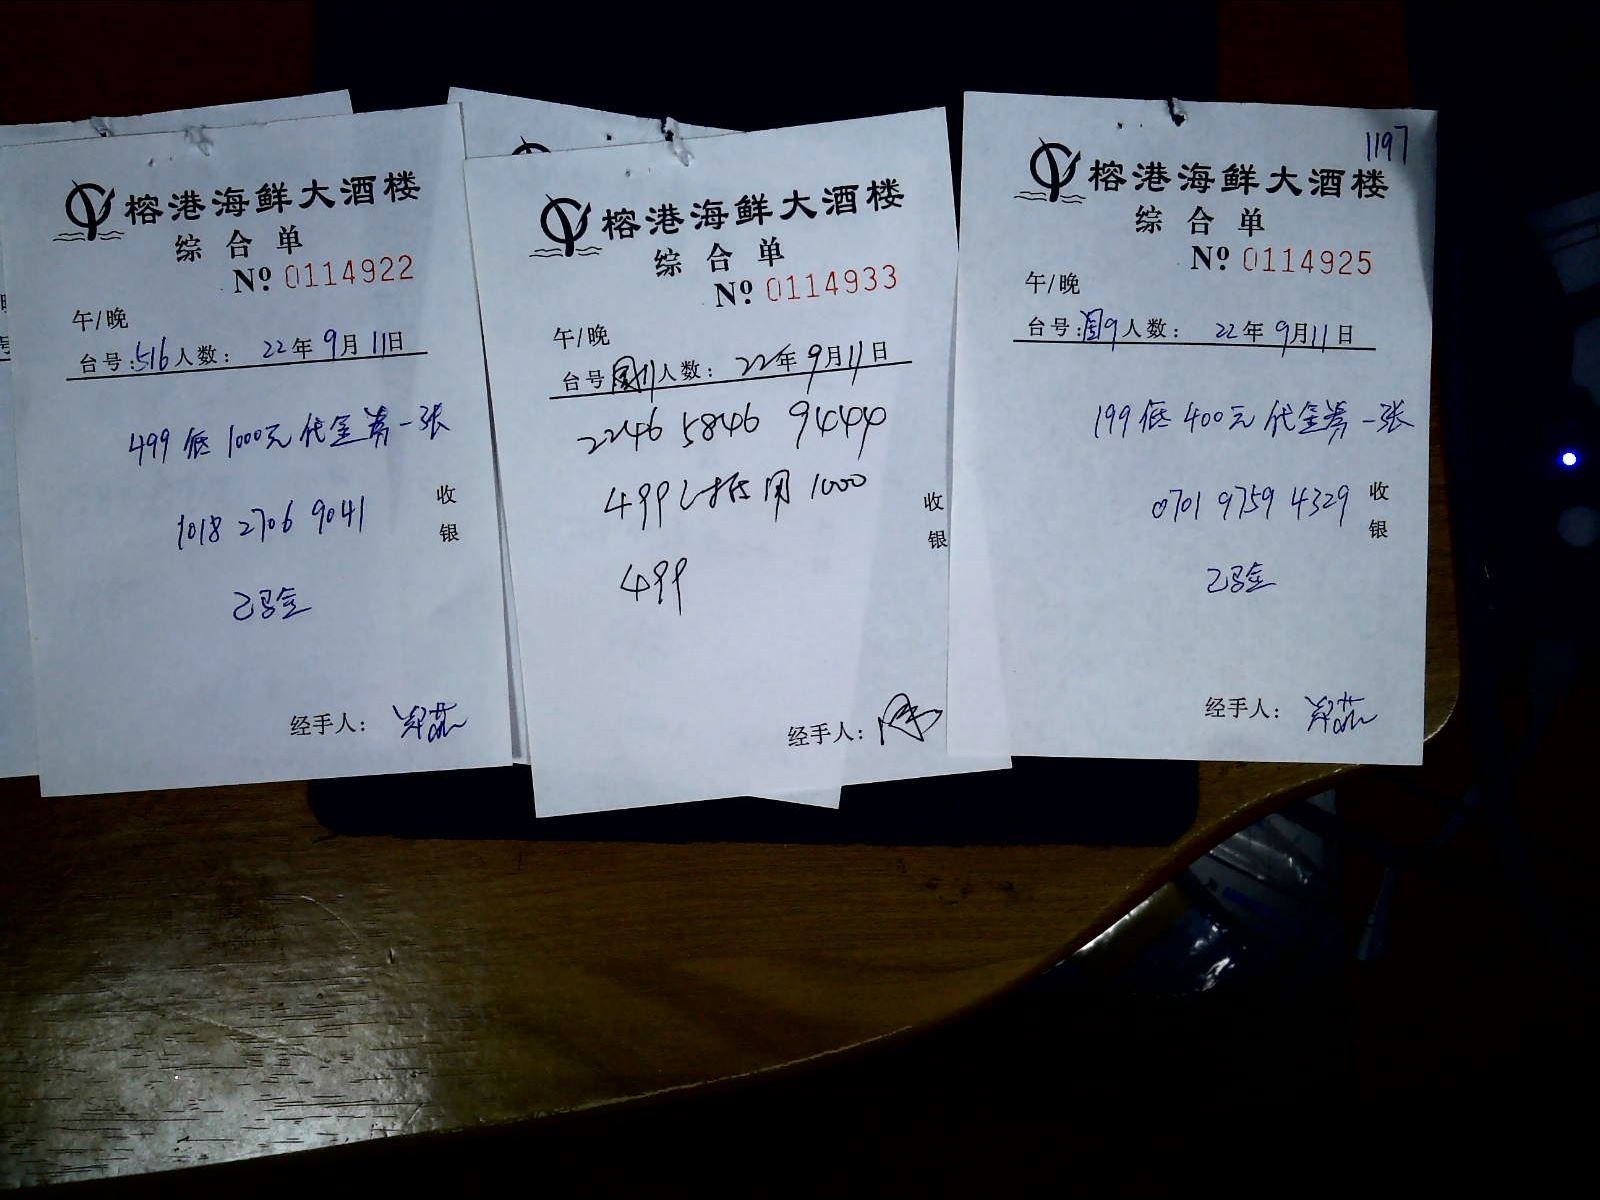 榕港海鲜大酒楼
综合单
Nº 0114922
午/晚
台号:516人数: 22年9月11日
499低1000元代金券一张
1018 2706 9041
收银
已验
经手人:
榕港海鲜大酒楼
综合单
Nº 0114933
午/晚
台号 人数: 22年9月11日
2246 5846 9444
499 用1000
收银
499
经手人:
1197
榕港海鲜大酒楼
综合单
Nº 0114925
午/晚
台号:围9人数: 22年9月11日
199低400元代金券一张
0701 9759 4329
收银
已验
经手人: